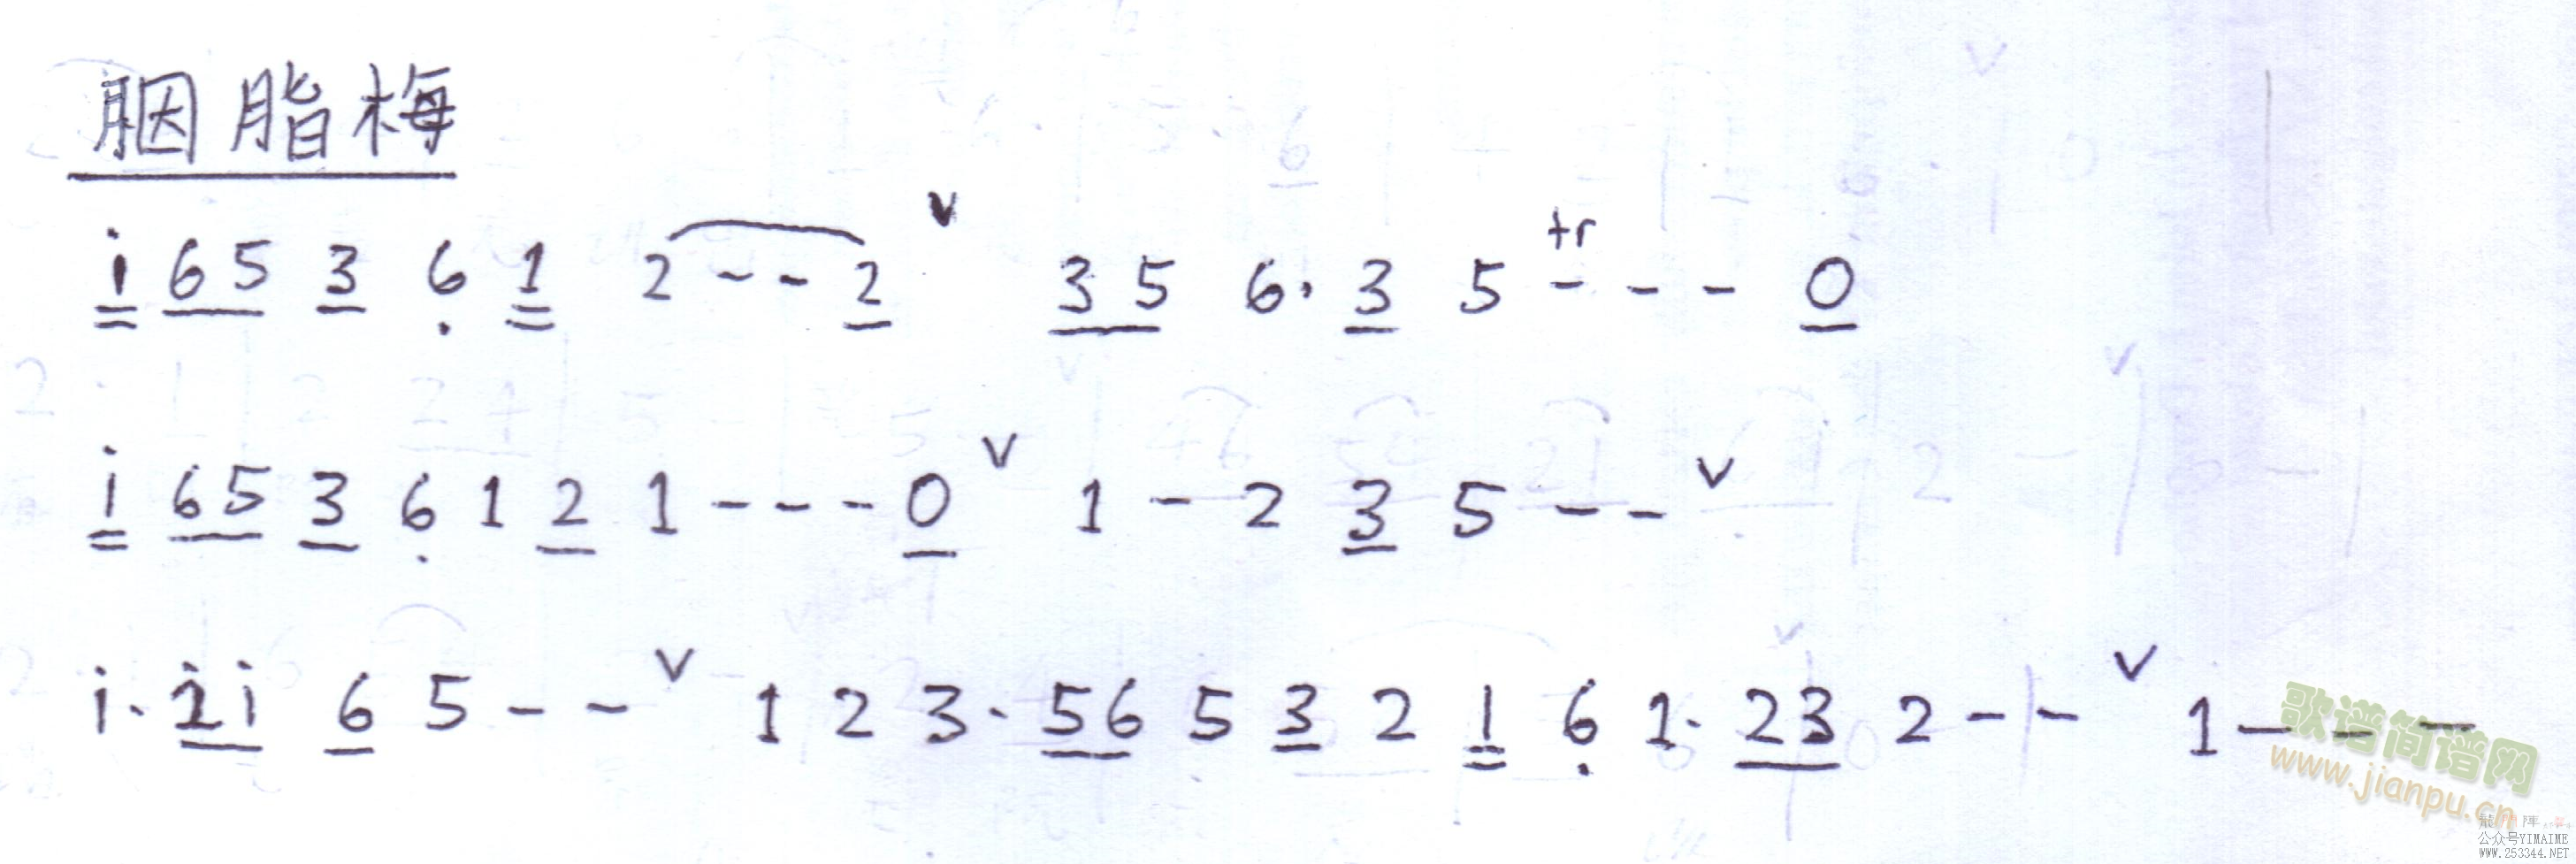 胭脂梅
i 65 3 6 1 2 - - 2 v 35 6· 3 5 tr - - - 0
i 65 3 6 1 2 1 - - - 0 v 1 - 2 3 5 - - v
i· 2i 6 5 - - v 1 2 3· 56 5 3 2 1 6 1· 23 2 - - v 1 - - -
歌谱简谱网
www.jianpu.cn
公众号YIMAIME
WWW.253344.NET